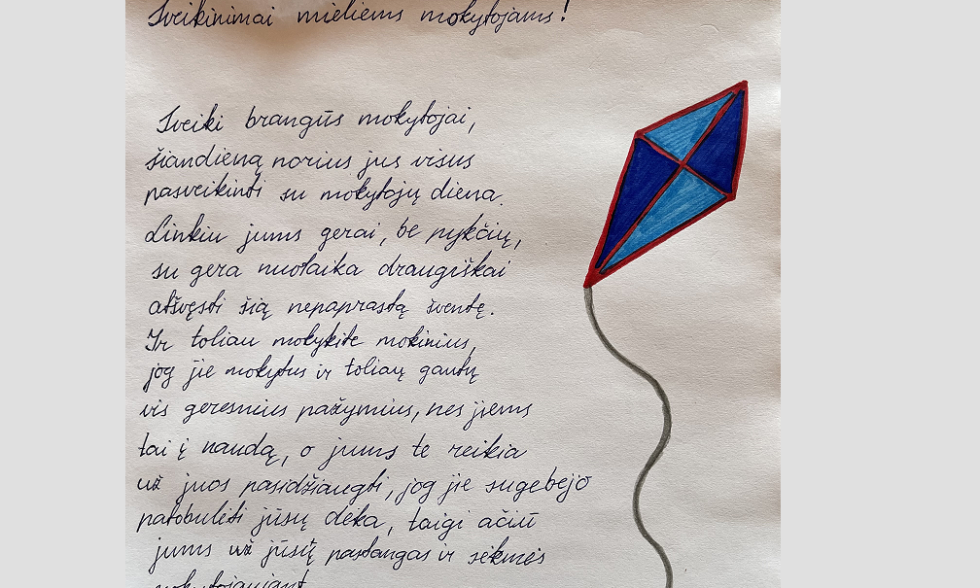 Sveikinimai mieliems mokytojams!
Sveiki brangūs mokytojai,
šiandieną norius jus visus
pasveikinti su mokytojų diena.
Linkiu jums gerai, be pykčių,
su gera nuotaika draugiškai
atšvęsti šią nepaprastą šventę.
Ir toliau mokykite mokinius,
jog jie mokytus ir toliau gautų
vis geresnius pažymius, nes jiems
tai į naudą, o jums te reikia
už juos pasidžiaugti, jog jie sugebėjo
patobulėti jūsų dėka, taigi ačiū
jums už jūsų pastangas ir sėkmės
mokytojaujant